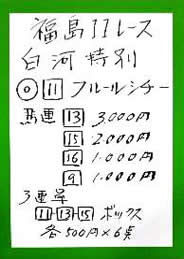 福島11レース
白河特別
◎ 11 フルールシチー
馬連 13 3,000円
15 2,000円
16 1,000円
9 1,000円
3連単
11-13-15 ボックス
各500円×6点